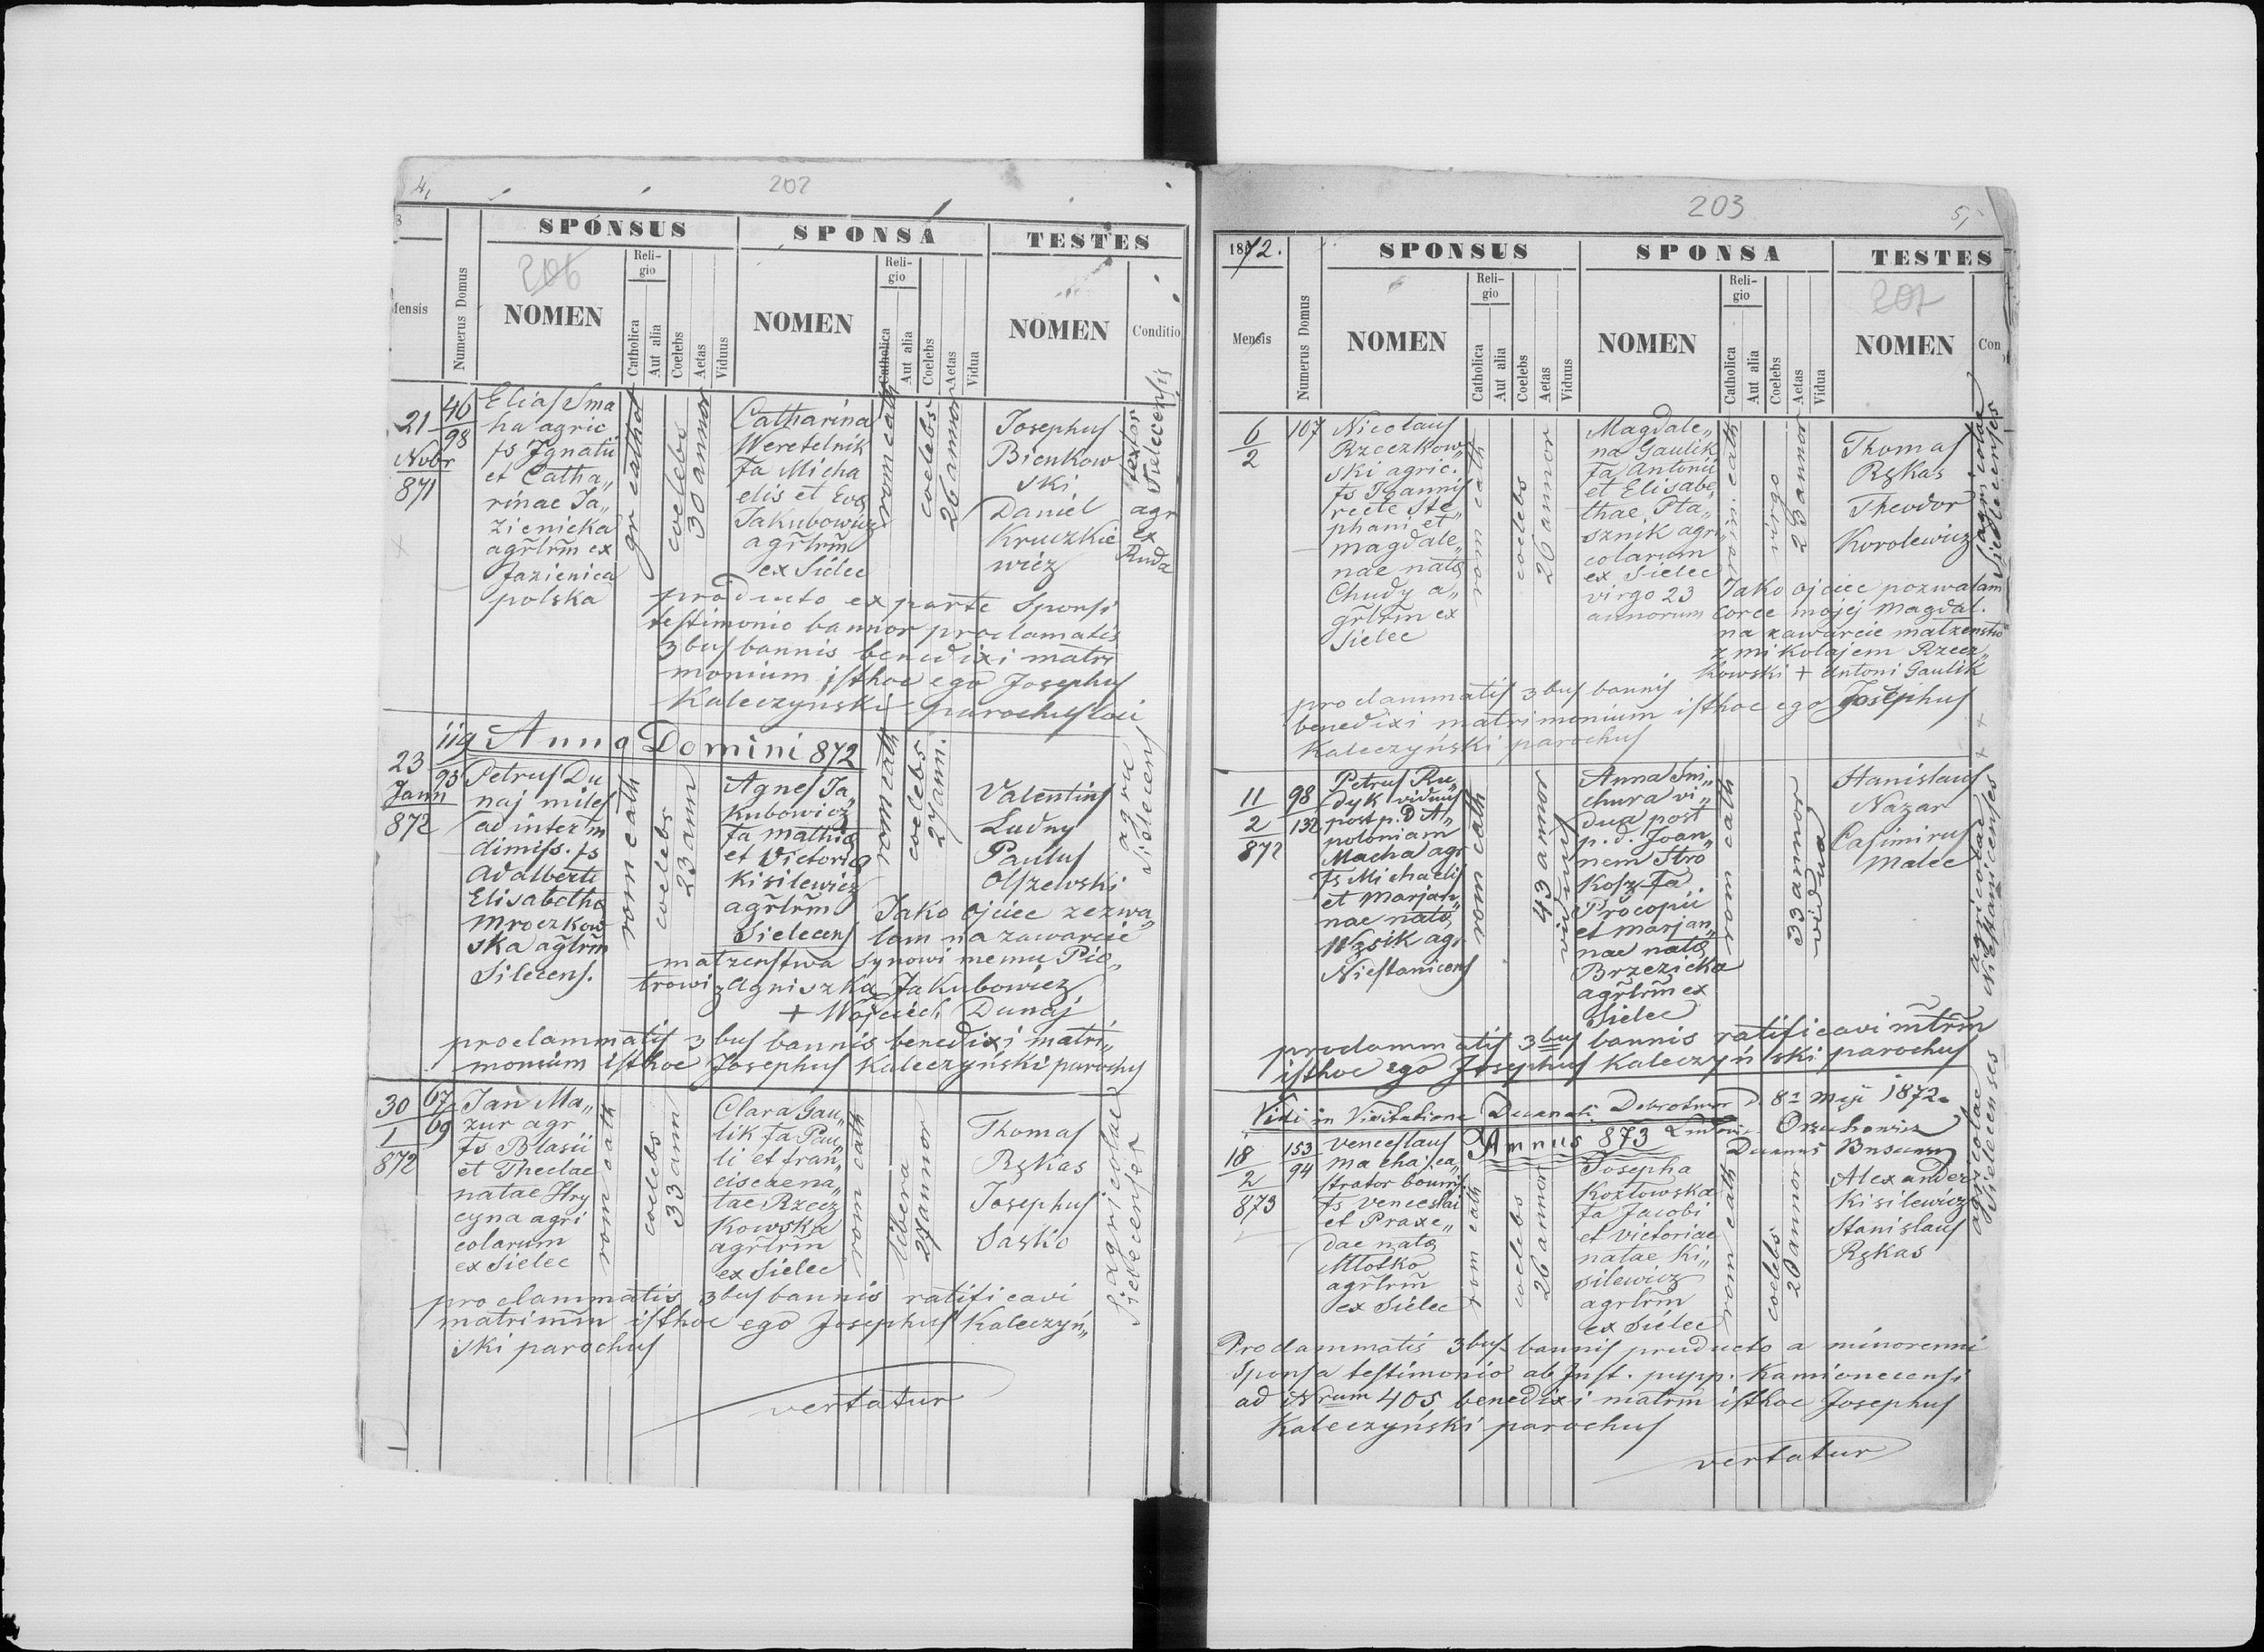 4,
202
SPONSUS
SPONSA
TESTES
Mensis
Numerus Domus
206
NOMEN
Reli-
gio
Catholica
Aut alia
Coelebs
Aetas
Viduus
NOMEN
Reli-
gio
Catholica
Aut alia
Coelebs
Aetas
Vidua
NOMEN
Conditio
21
Nvbr
871
46
98
Elias Sma
ha agric
fs Ignatii
et Catha„
rinae Ja„
zienicka
agrlrm ex
Jazienica
polska
gr cathol
coelebs
30 annor
Catharina
Weretelnik
fa Micha
elis et Eva
Jakubowicz
agrlrm
ex Sielec
rom cath
coelebs
26 annor
Josephus
Bienkow
ski
Daniel
Kruczkie
wicz
textor
Sielecensis
agr
ex
Ruda
producto ex parte Sponsi
testimonio bannor proclamatis
3bus bannis benedixi matri
monium isthoc ego Josephus
Kaleczynski parochus loci
Anno Domini 872
23
Jann
872
119
93
Petrus Du
naj miles
ad interim
dimiss. fs
Adalberti
Elisabetha
Mroczkow
ska agrlrm
Silecens.
rom cath
coelebs
23 ann
Agnes Ja„
kubowicz
fa Mathia
et Victoria
Kisilewicz
agrlrm
Sielecens
rom cath
coelebs
27 ann.
Valentins
Ludny
Paulus
Olszewski
agric
Sielecens
Jako ojciec zezwa„
lam na zawarcie
matzenstwa synowi memu Pio„
trowi z Agniszka Jakubowicz
+ Wojciech Dunaj
proclammatis 3bus bannis benedixi matri„
monium isthoc Josephus Kaleczyński parochus
30
1
872
67
69
Jan Ma„
zur agr
fs Blasii
et Theclae
natae Hry
cyna agri
colarum
ex Sielec
rom cath
coelebs
33 ann
Clara Gau„
lik fa Pau„
li et fran„
ciscae na„
tae Rzecz
kowska
agrlrm
ex Sielec
rom cath
libera
27 annor
Thomas
Rękas
Josephus
Sasko
agricolae
Sielecenses
proclammatis 3bus bannis ratificavi
matrimm isthoc ego Josephus Kaleczyń„
ski parochus
vertatur
203
5,
1872.
SPONSUS
SPONSA
TESTES
Mensis
Numerus Domus
NOMEN
Reli-
gio
Catholica
Aut alia
Coelebs
Aetas
Viduus
NOMEN
Reli-
gio
Catholica
Aut alia
Coelebs
Aetas
Vidua
207
NOMEN
Con
6
2
107
Nicolaus
Rzeczkow„
ski agric.
fs Joannis
recte Ste„
phani et
Magdale„
nae nata
Chudy a„
grlrm ex
Sielec
rom cath
coelebs
26 annor
Magdale„
na Gaulik
fa Antonii
et Elisabe„
thae Pta„
sznik agri
colarum
ex Sielec
virgo 23
annorum
rom. cath
virgo
23 annor
Thomas
Rękas
Theodor
Korolewicz
agricolae
Sielecenses
Jako ojciec pozwalam
corce mojej Magdal.
na zawarcie matzenstw
z Mikolajem Rzecz„
kowski + Antoni Gaulik
proclammatis 3bus bannis
benedixi matrimonium isthoc ego Josephus
Kaleczyński parochus
11
2
872
98
132
Petrus Ru„
dyk viduus
post p. D A„
poloniam
Macha agr
fs Michaelis
et Marjan„
nae nata
Węsik agr
Niestanicens
rom cath
43 annor
viduus
Anna Smi„
chura vi„
dua post
p. d. Joan„
nem Stro
kosz fa
Procopii
et Marjan„
nae nata
Brzezicka
agrlrm ex
Sielec
rom cath
33 annor
vidua
Stanislaus
Nazar
Casimirus
Malec
agricolae
Niestanicenses
proclammatis 3bus bannis ratificavi mtrm
isthoc ego Josephus Kaleczyński parochus
Vidi in Visitatione Decanali Dobrotwor d. 8a Maji 1872.
Orzechowicz
Decanus
Annus 873
18
2
873
153
94
Venceslaus
Macha ca„
strator boum
fs Venceslai
et Praxe„
dae nata
Mlotko
agrlrm
ex Sielec
rom cath
coelebs
26 annor
Josepha
Kozłowska
fa Jacobi
et Victoriae
natae Ki„
silewicz
agrlrm
ex Sielec
rom cath
coelebs
20 annor
Alexander
Kisilewicz
Stanislaus
Rękas
agricolae
Sielecenses
Proclammatis 3bus bannis producto a minorenni
Sponsa testimonio ab Inst. pupp. Kamionecensi
ad Nrum 405 benedixi matrm isthoc Josephus
Kaleczyński parochus
vertatur